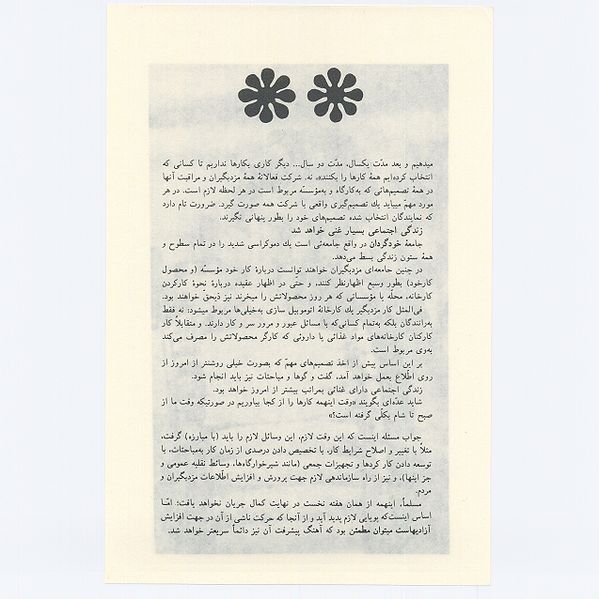 میدهیم و بعد مدّت یکسال، مدّت دو سال... دیگر کاری بکارها نداریم تا کسانی که
انتخاب کرده‌ایم همهٔ کارها را بکنند»، نه. شرکت فعالانهٔ همهٔ مزدبگیران و مراقبت آنها
در همهٔ تصمیم‌هائی که به‌کارگاه و به‌مؤسسّه مربوط است در هر لحظه لازم است. در هر
مورد مهمّ میباید یك تصمیم‌گیری واقعی با شرکت همه صورت گیرد. ضرورت تام دارد
که نمایندگان انتخاب شده تصمیم‌های خود را بطور پنهانی نگیرند.
زندگی اجتماعی بسیار غنی خواهد شد
جامعهٔ خودگردان در واقع جامعه‌ئی است یك دموکراسی شدید را در تمام سطوح و
همهٔ ستون زندگی بسط می‌دهد.
در چنین جامعه‌ای مزدبگیران خواهند توانست دربارهٔ کار خود مؤسسّه (و محصول
کارخود) بطور وسیع اظهارنظر کنند، و حتّی در اظهار عقیده دربارهٔ نحوهٔ کارکردن
کارخانه، محلّه یا مؤسساتی که هر روز محصولاتش را میخرند نیز ذیحق خواهند بود.
فی‌المثل کار مزدبگیر یك کارخانهٔ اتوموبیل سازی به‌خیلی‌ها مربوط میشود: نه فقط
به‌رانندگان بلکه به‌تمام کسانی‌که با مسائل عبور و مرور سر و کار دارند. و متقابلاً کار
کارکنان کارخانه‌های مواد غذائی یا داروئی که کارگر محصولاتش را مصرف می‌کند
به‌وی مربوط است.
بر این اساس پیش از اخذ تصمیم‌های مهمّ که بصورت خیلی روشنتر از امروز از
روی اطّلاع بعمل خواهد آمد، گفت و گوها و مباحثات نیز باید انجام شود.
زندگی اجتماعی دارای غنائی بمراتب بیشتر از امروز خواهد بود.
شاید عدّه‌ای بگویند «وقت اینهمه کارها را از کجا بیاوریم در صورتیکه وقت ما از
صبح تا شام بکلّی گرفته است؟»
جواب مسئله اینست که این وقت لازم، این وسائل لازم را باید (با مبارزه) گرفت،
مثلاً با تغییر و اصلاح شرایط کار، با تخصیص دادن درصدی از زمان کار به‌مباحثات، با
توسعه دادن کار کردها و تجهیزات جمعی (مانند شیرخوارگاه‌ها، وسائط نقلیه عمومی و
جز اینها)، و نیز از راه سازماندهی لازم جهت پرورش و افزایش اطّلاعات مزدبگیران و
مردم.
مسلماً، اینهمه از همان هفته نخست در نهایت کمال جریان نخواهد یافت؛ امّا
اساس اینست‌که پویایی لازم پدید آید و از آنجا که حرکت ناشی از آن در جهت افزایش
آزادیهاست میتوان مطمئن بود که آهنگ پیشرفت آن نیز دائماً سریعتر خواهد شد.